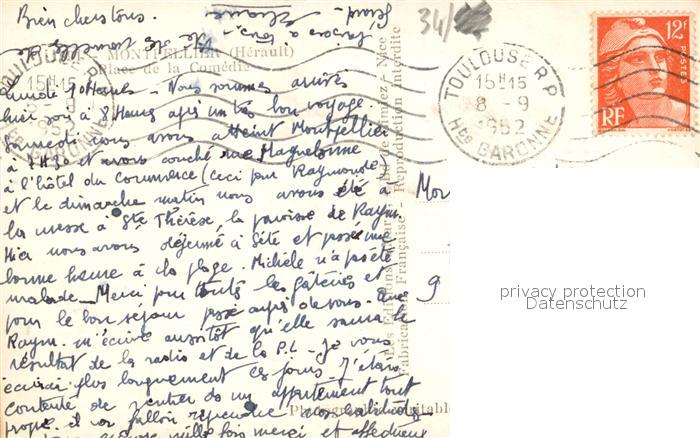 Bien chers tous.
34/
12F
POSTES
RF
TOULOUSE R.P.
15H15
8-9
1952
Hte GARONNE
MONTPELLIER (Hérault)
Place de la Comédie
Lundi 10 Heures - Nous sommes arrivés
hier soir à 8 Heures après un très bon voyage.
Samedi nous avons atteint Montpellier
à 7H30 et avons couché rue Maguelonne
à l'hôtel du Commerce (ceci pour Raymonde)
et le dimanche matin nous avons été à
la messe à Ste Thérèse, la paroisse de Raym.
Hier nous avons déjeuné à Sète et passé une
bonne heure à la plage. Michèle n'a pas été
malade - Merci pour toutes les gâteries et
pour le bon séjour passé auprès de vous. Que
Raym. m'écrive aussitôt qu'elle saura le
résultat de la radio et de la P.L - Je vous
écrirai plus longuement ces jours. J'étais
contente de rentrer ds un appartement tout
propre. il va falloir reprendre nos habitudes
mille fois merci et affectueux
Les Editions
Nice
Fabrication Française - Reproduction interdite
Mon
9
privacy protection
Datenschutz